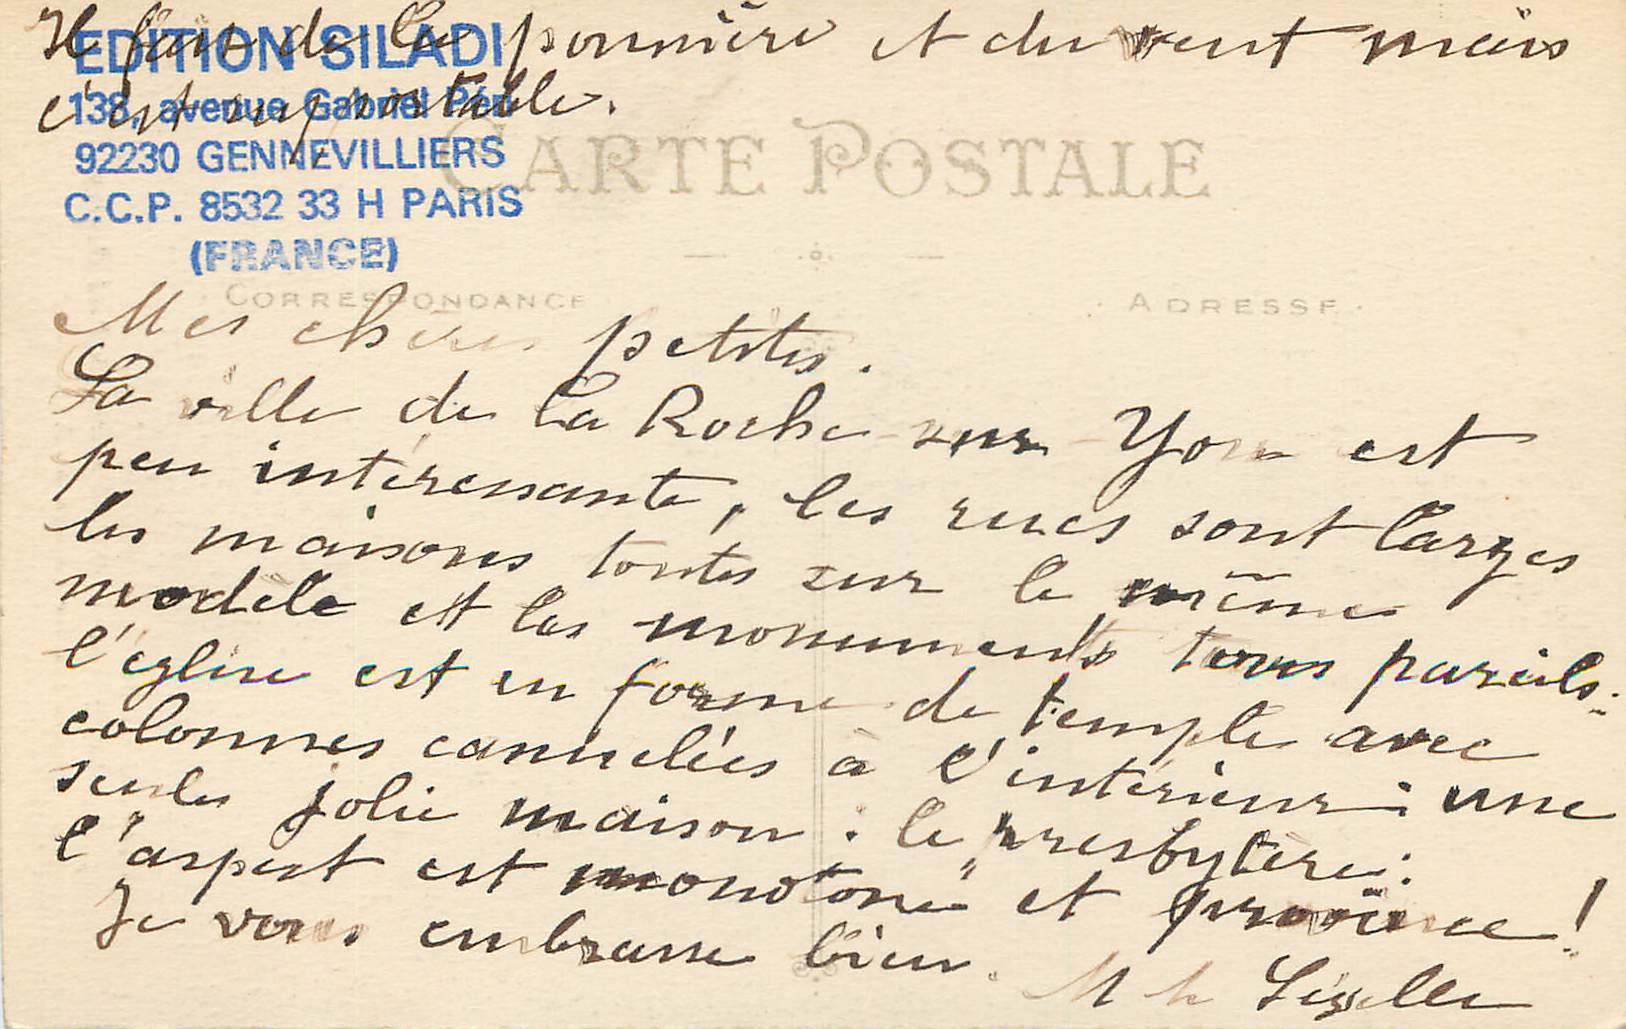 Il fait de la poussière et du vent mais
c'est supportable.
EDITION SILADI
138, avenue Gabriel Péri
92230 GENNEVILLIERS
C.C.P. 8532 33 H PARIS
(FRANCE)
CARTE POSTALE
CORRESPONDANCE
ADRESSE
Mes chères petites.
La ville de la Roche sur Yon est
peu intéressante, les rues sont larges
les maisons toutes sur le même
modèle et les monuments tous pareils.
l'église est en forme de temple avec
colonnes cannelées à l'intérieur : une
seule jolie maison : le presbytère :
l'aspect est monotone et province !
Je vous embrasse bien.
M